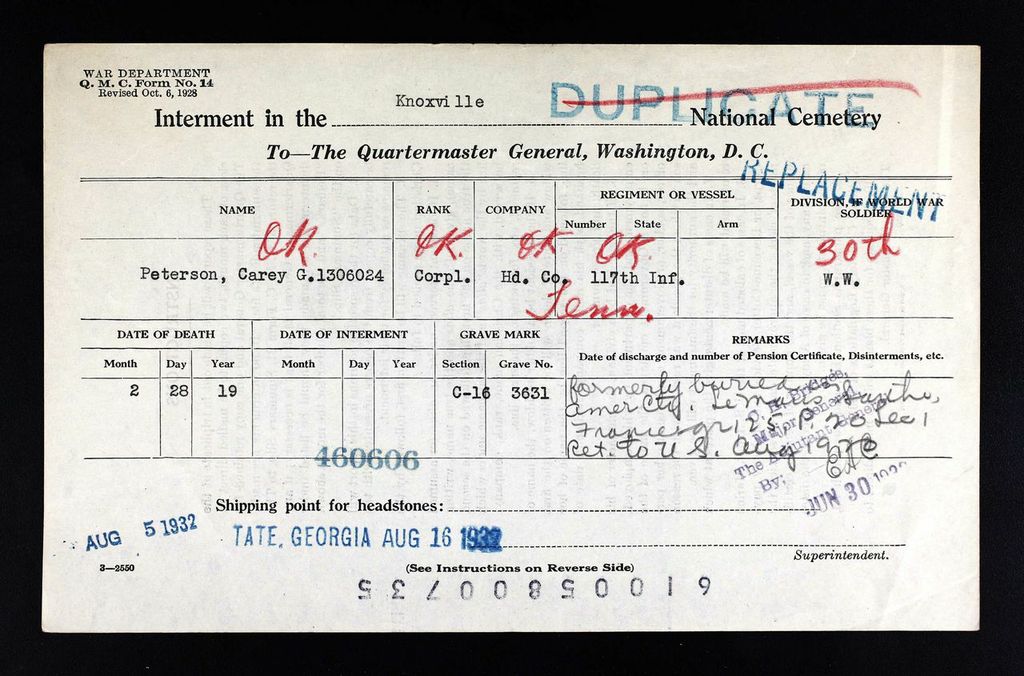 WAR DEPARTMENT
Q. M. C. Form No. 14
Revised Oct. 6, 1928
DUPLICATE
Knoxville
Interment in the National Cemetery
To—The Quartermaster General, Washington, D. C.
REPLACEMENT
NAME RANK COMPANY REGIMENT OR VESSEL DIVISION, IF WORLD WAR SOLDIER
Number State Arm
OK. OK. OK OK. 30th
Peterson, Carey G.1306024 Corpl. Hd. Co. 117th Inf. W.W.
Tenn.
DATE OF DEATH DATE OF INTERMENT GRAVE MARK REMARKS
Date of discharge and number of Pension Certificate, Disinterments, etc.
Month Day Year Month Day Year Section Grave No.
2 28 19 C-16 3631
formerly buried
Amer Cty. Le Mans Sarthe,
France gr 125 P. 20 Sec 1
Ret. to U S. Aug 19
C. H. Bridges,
Major General,
The Adjutant General
By:
JUN 30
460606
Shipping point for headstones:
AUG 5 1932
TATE, GEORGIA AUG 16 1932
Superintendent.
3—2550
(See Instructions on Reverse Side)
6100580 0735